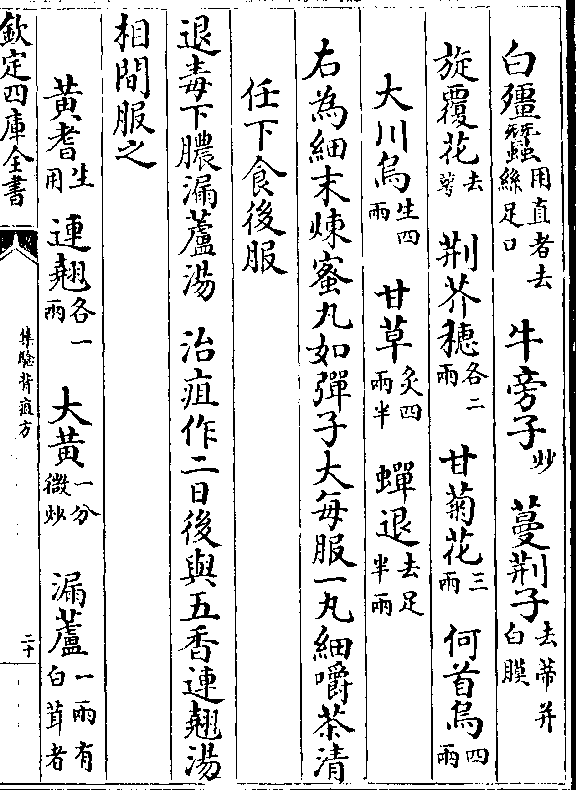 白殭蠶用直者去絲足口 牛旁子炒 蔓荆子去蒂并白膜
旋覆花去萼 荆芥穗各二兩 甘菊花三兩 何首烏四兩
大川烏生四兩 甘草炙四兩半 蟬退去足半兩
右為細末煉蜜丸如彈子大每服一丸細嚼茶清
任下食後服
退毒下膿漏蘆湯 治疽作二日後與五香連翹湯
相間服之
黃耆生用 連翹各一兩 大黃一分微炒 漏蘆一兩有白茸者
欽定四庫全書
集驗背疽方
二十